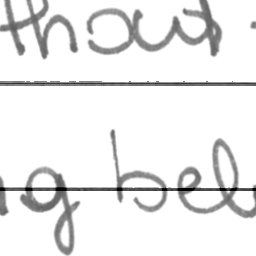 thout
ng bel